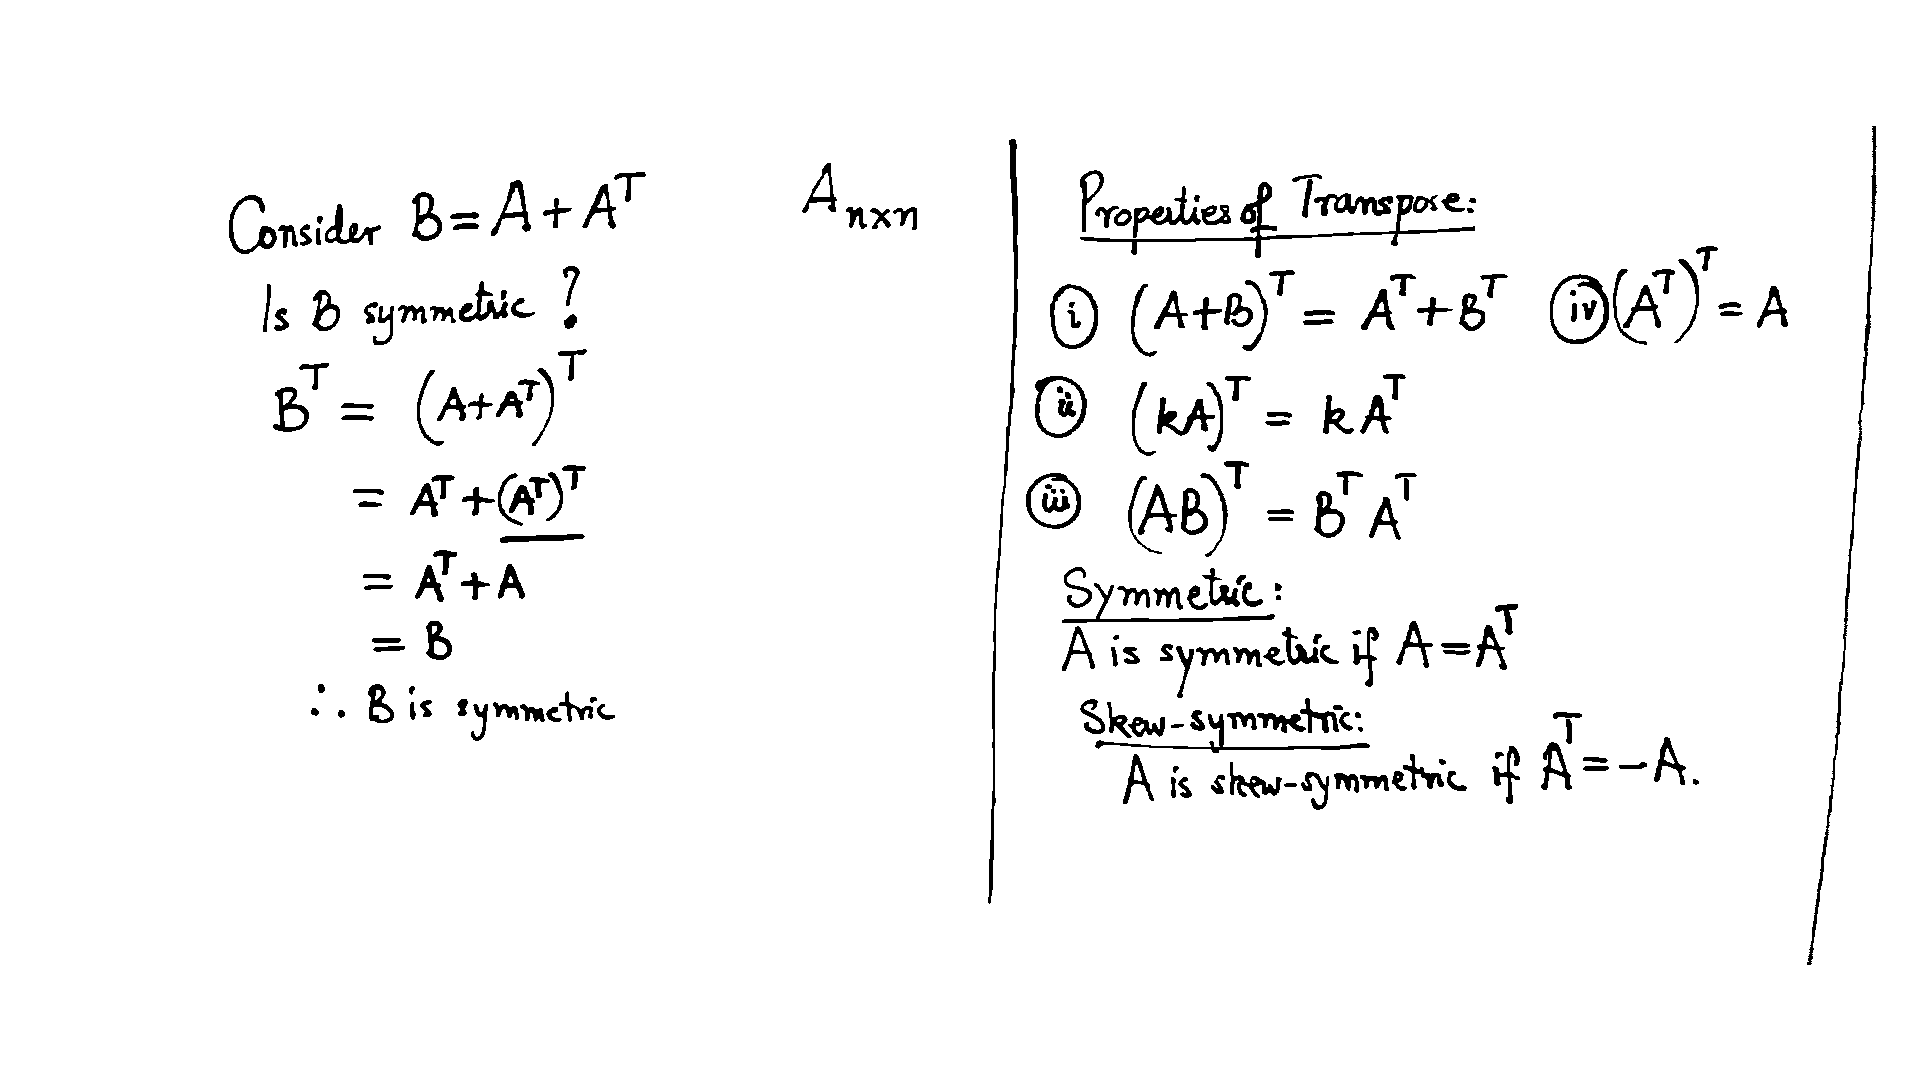 Consider B = A + Aᵀ
A n×n
Is B symmetric ?
Bᵀ = (A+Aᵀ)ᵀ
= Aᵀ + (Aᵀ)ᵀ
= Aᵀ + A
= B
∴ B is symmetric
Properties of Transpose:
(i) (A+B)ᵀ = Aᵀ + Bᵀ (iv) (Aᵀ)ᵀ = A
(ii) (kA)ᵀ = k Aᵀ
(iii) (AB)ᵀ = Bᵀ Aᵀ
Symmetric:
A is symmetric if A = Aᵀ
Skew-symmetric:
A is skew-symmetric if Aᵀ = -A.